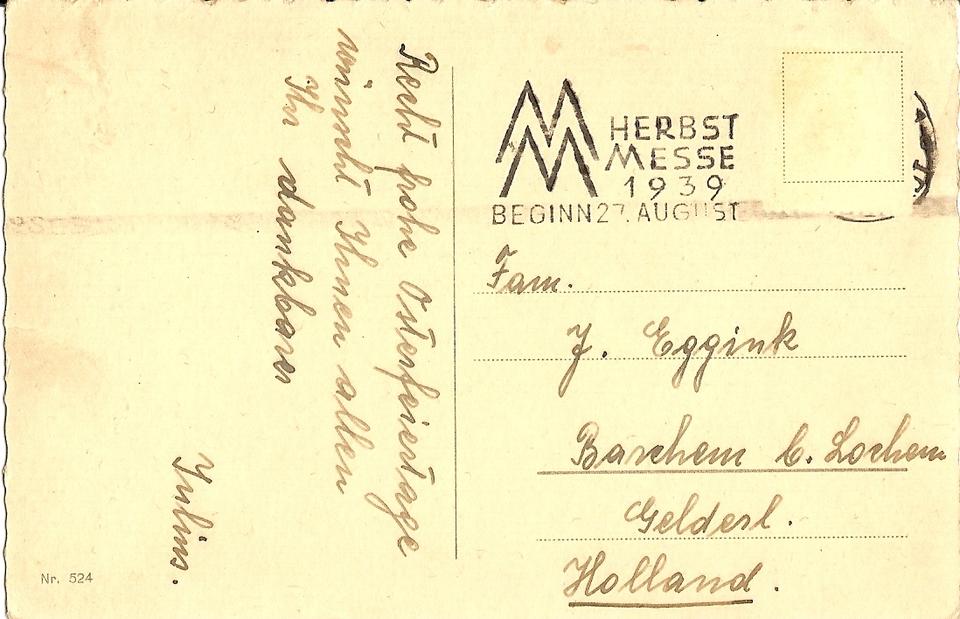 Recht frohe Osterfeiertage
wünscht Ihnen allen
Ihr dankbarer
Julius.
HERBST
MESSE
1939
BEGINN 27. AUGUST
Fam.
J. Eggink
Barchem b. Lochem
Gelderl.
Holland.
Nr. 524